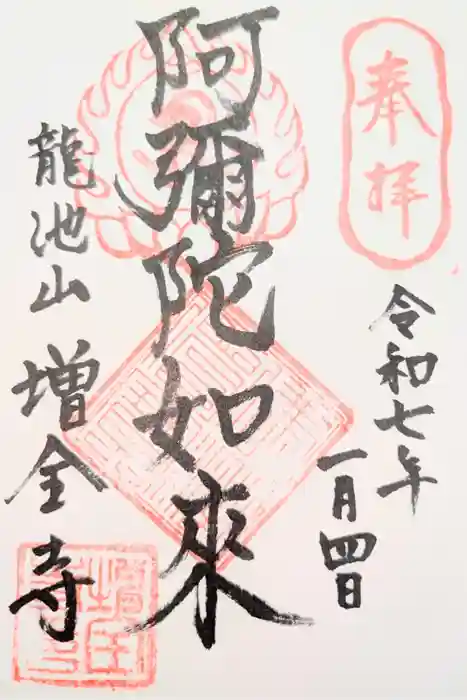 奉拝
令和七年
一月四日
阿彌陀如來
龍池山
増全寺